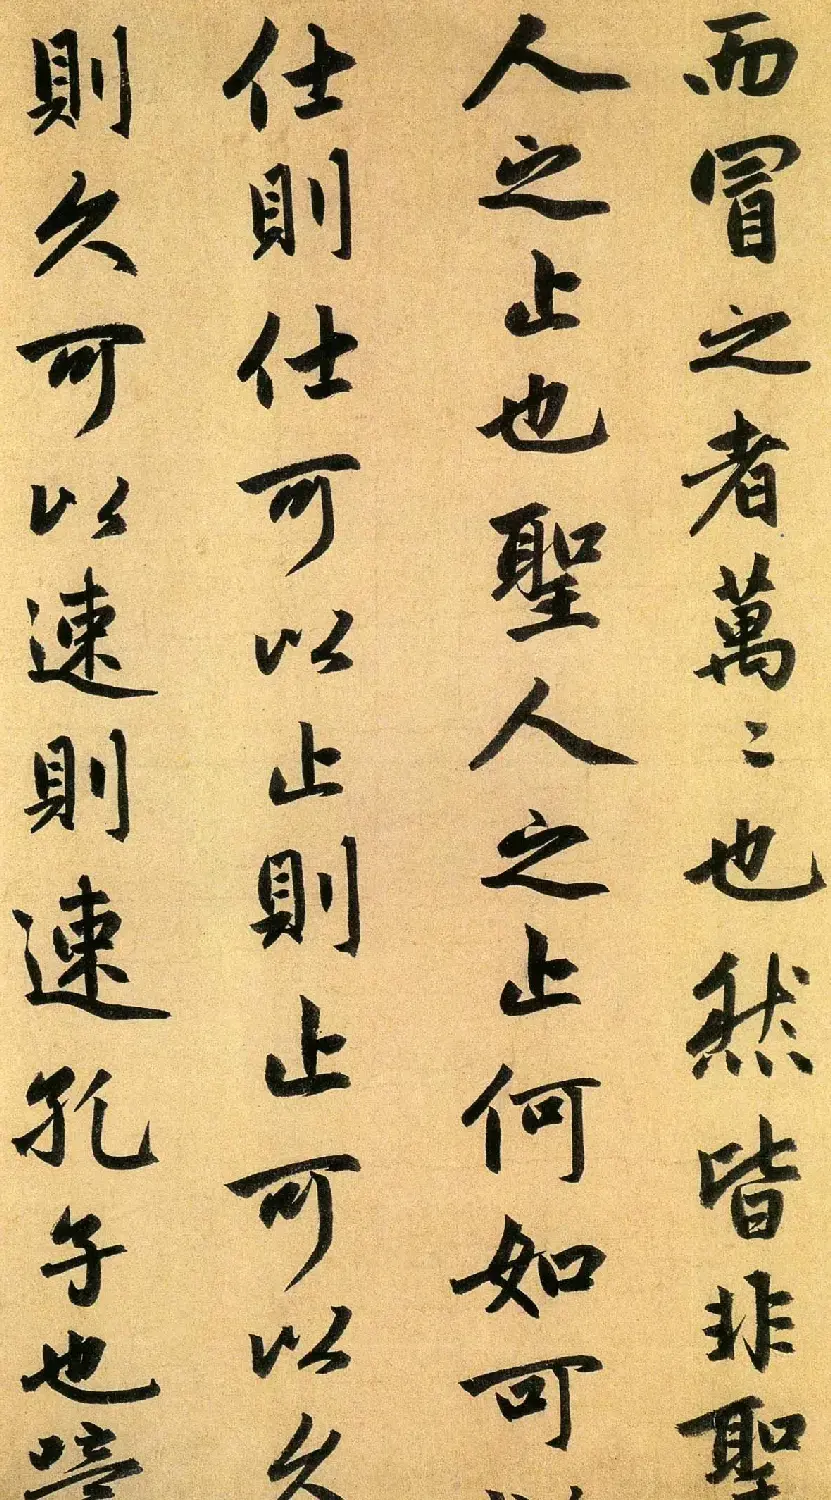 而冒之者萬々也然皆非聖
人之止也聖人之止何如可以
仕則仕可以止則止可以久
則久可以速則速孔子也